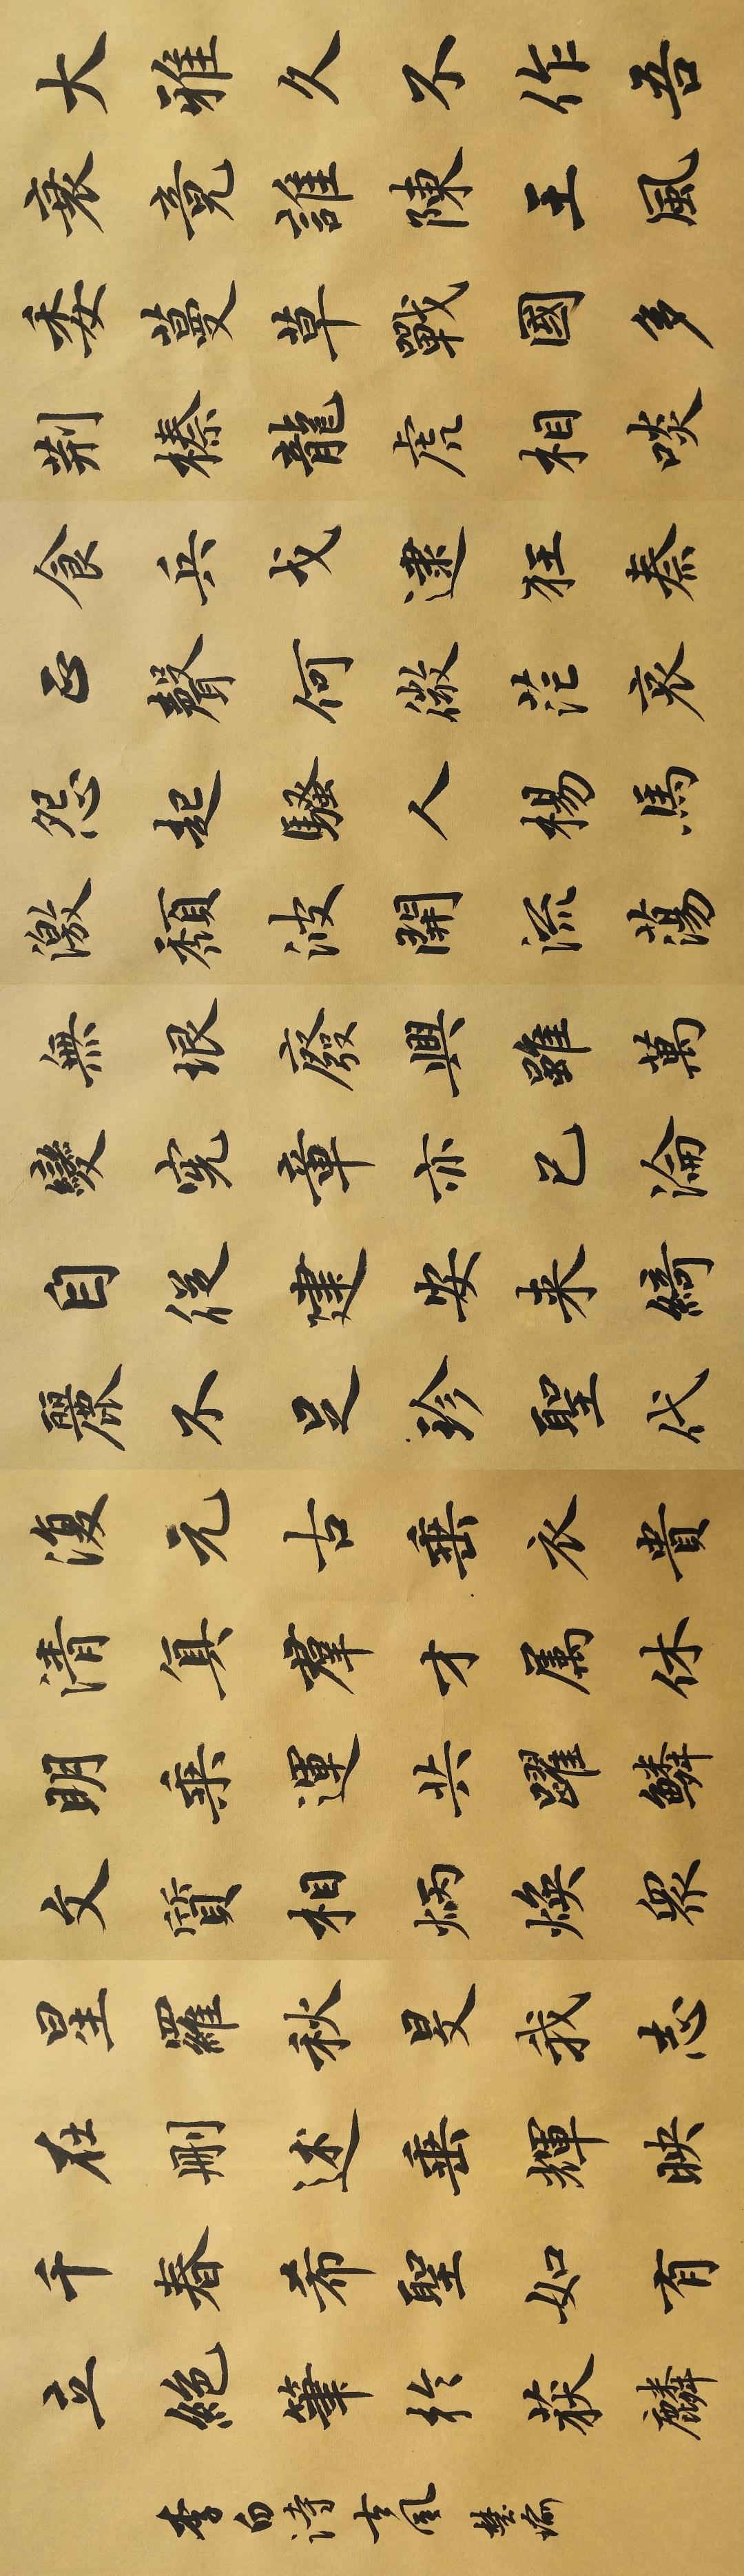 大雅久不作吾
衰竟誰陳王風
委蔓草戰國多
荆榛龍虎相啖
食兵戈逮狂秦
正聲何微茫哀
怨起騷人楊馬
激頹波開流蕩
無垠廢興雖萬
變宪章亦已淪
自從建安来綺
麗不足珍聖代
復元古垂衣貴
清真群才属休
明乘運共躍鱗
文質相炳煥眾
星羅秋旻我志
在刪述垂輝映
千春希聖如有
立絕筆於获麟
李白詩古風